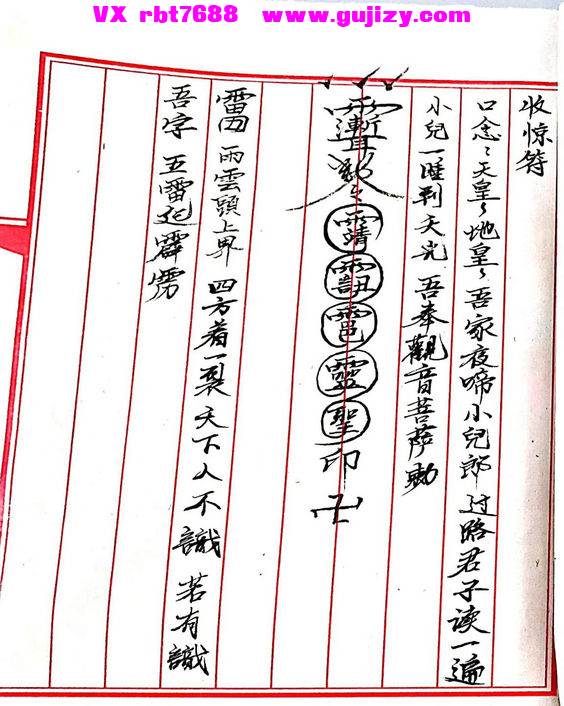 VX rbt7688 www.gujizy.com
收惊符
口念：天皇皇地皇皇 吾家夜啼小兒郎 过路君子读一遍
小兒一睡到天光 吾奉觀音菩萨勅
聖印卍
雷 雨雲頭上界 四方着一裂 天下人不識 若有識
吾字 五雷 霹雳